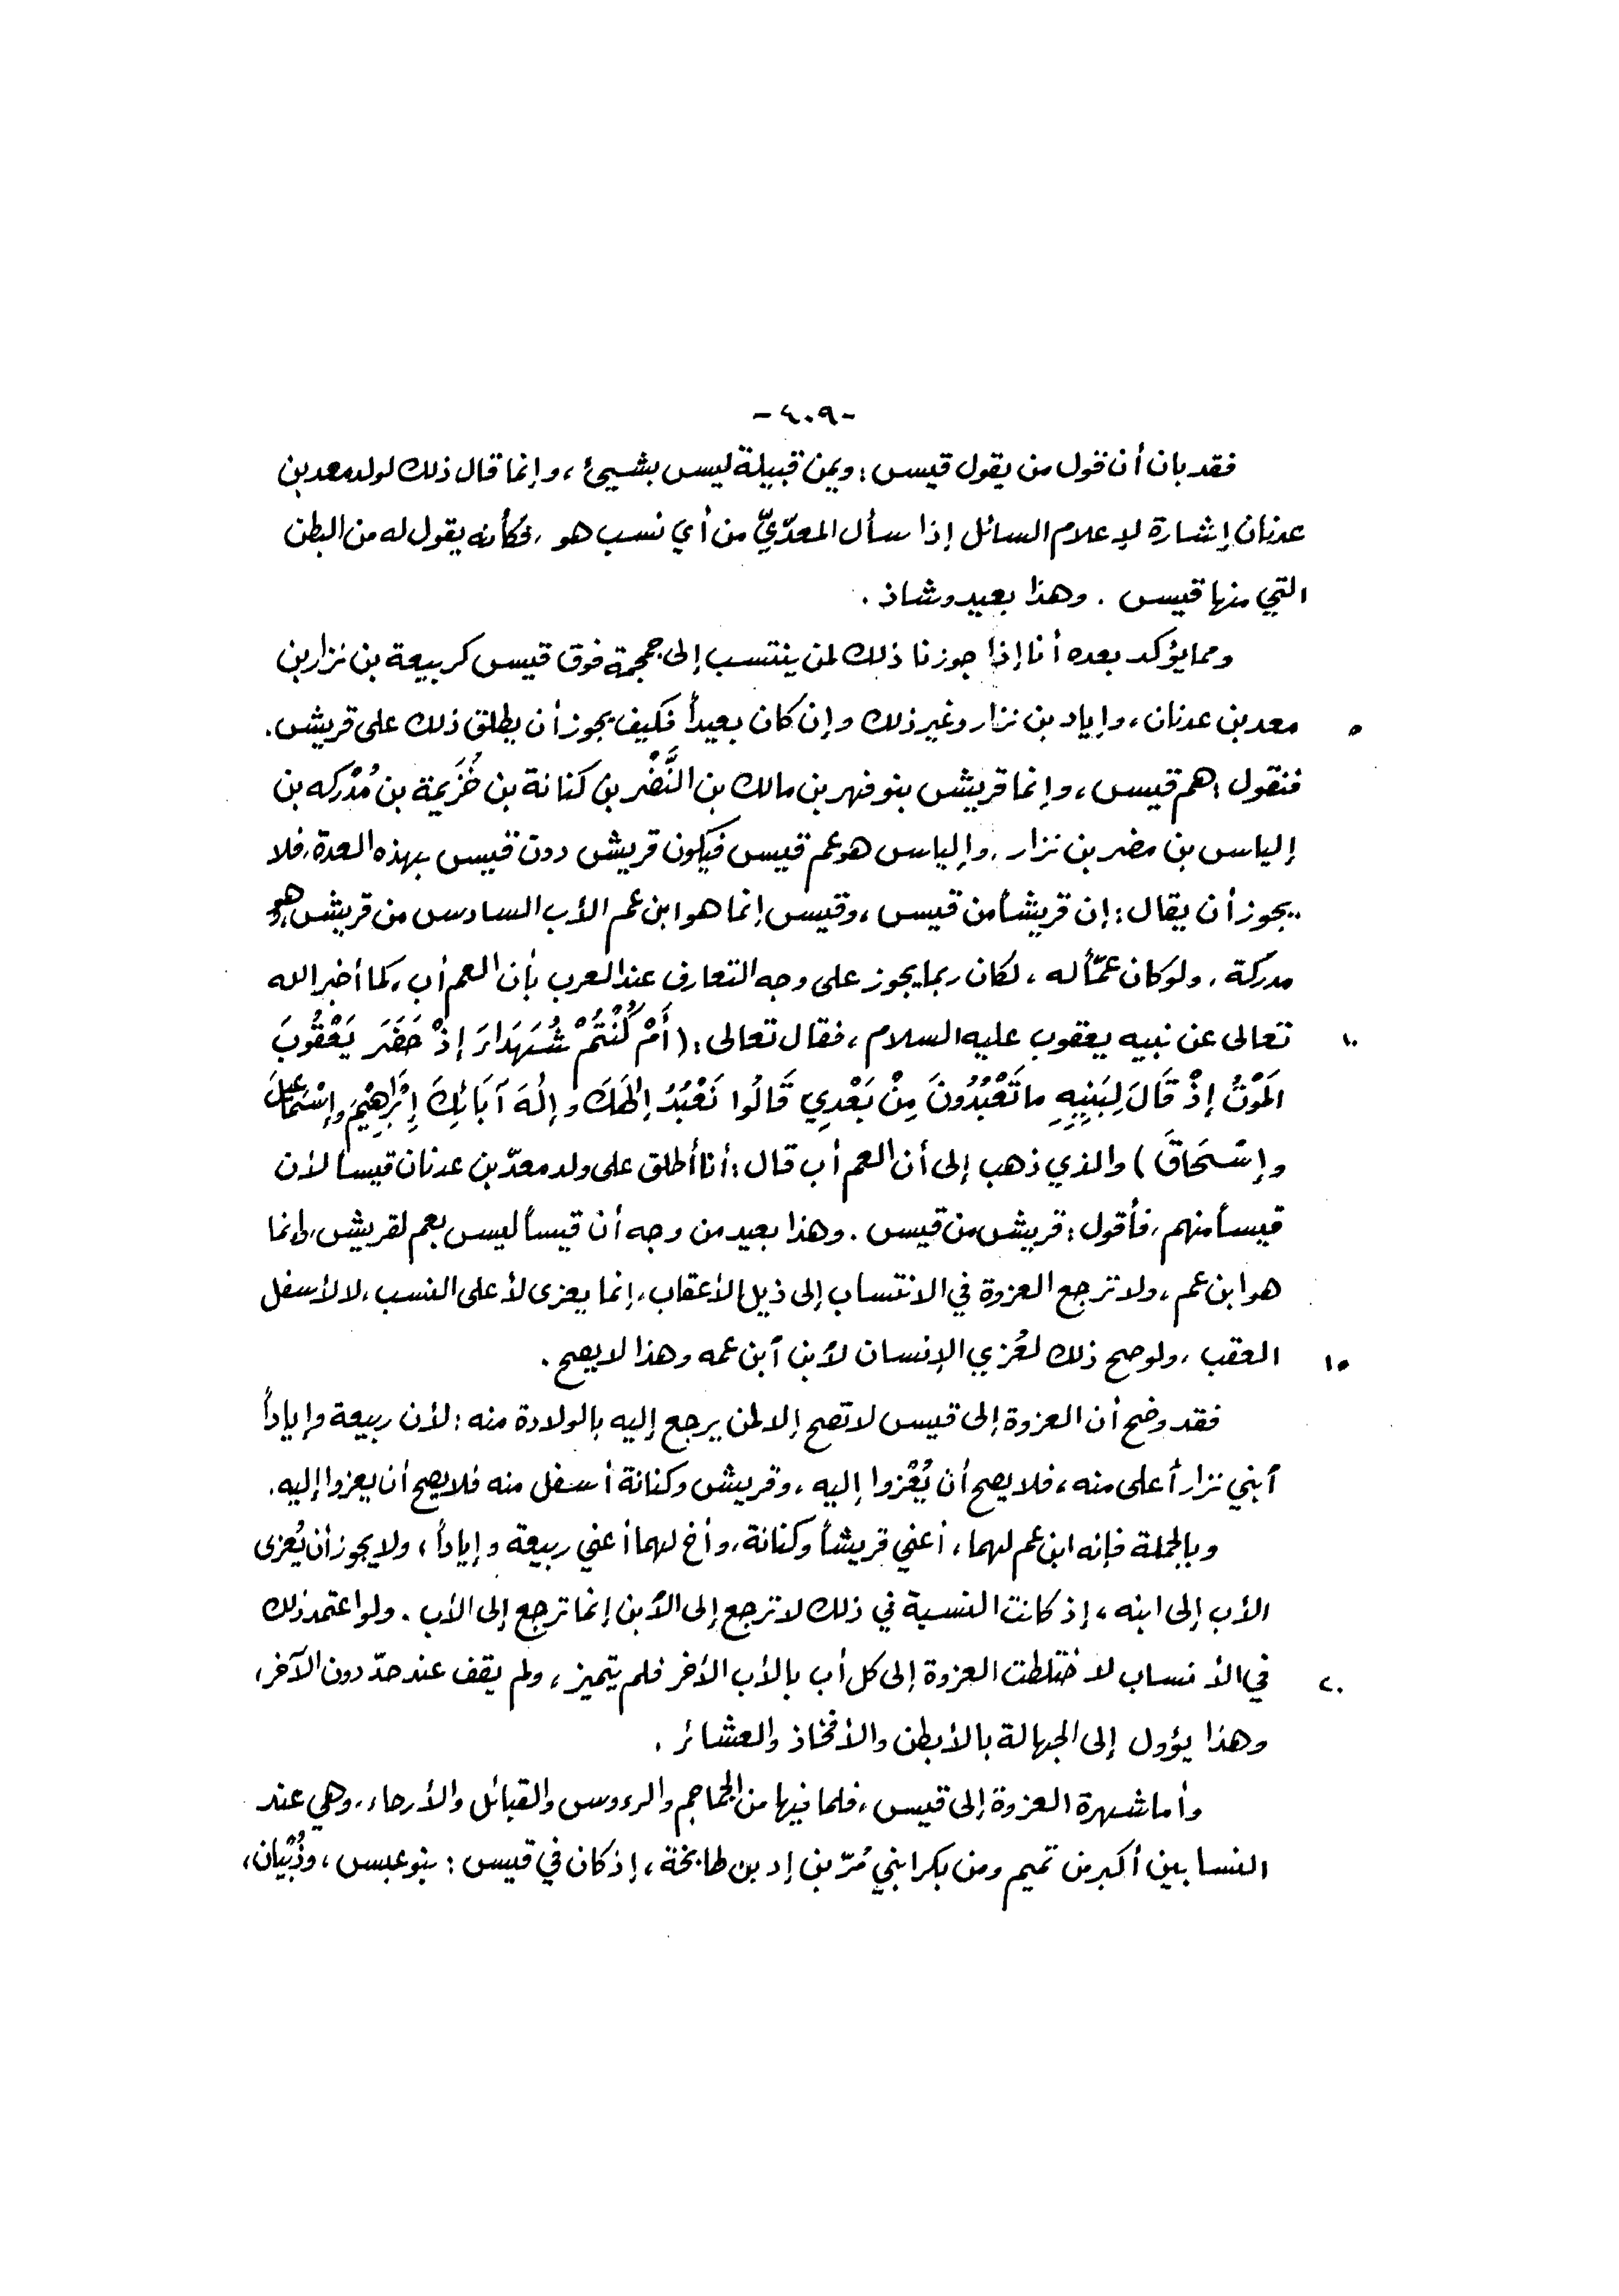 -٤٠٩-
فقد بان أن قول من يقول قيس : ويمن قبيلة ليس بشيئ ، وإنما قال ذلك لولد معد بن
عدنان إشارة لإعلام السائل إذا سأل المعدّيّ من أي نسب هو ، فكأنه يقول له من البطن
التي منها قيس . وهذا بعيد وشاذ .
ومما يؤكد بعده أنا إذا جوزنا ذلك لمن ينتسب إلى جمجمة فوق قيس كربيعة بن نزار بن
٥ معد بن عدنان ، وإياد بن نزار وغير ذلك وإن كان بعيداً فكيف يجوز أن يطلق ذلك على قريش .
فنقول : هم قيس ، وإنما قريش بنو فهر بن مالك بن النَّضْر بن كنانة بن خُزَيمة بن مُدْركه بن
إلياس بن مضر بن نزار . وإلياس هو عم قيس فيكون قريش دون قيس بهذه العدة ، فلا
يجوز أن يقال : إن قريشاً من قيس ، وقيس إنما هو ابن عم الأب السادس من قريش وهو
مدركة . ولو كان عمّاً له ، لكان ربما يجوز على وجه التعارف عند العرب بأن العم أب ، كما أخبر الله
١٠ تعالى عن نبيه يعقوب عليه السلام ، فقال تعالى : ( أَمْ كُنْتُمْ شُهَدَاءَ إذْ حَضَرَ يَعْقُوبَ
المَوْتُ إذْ قَالَ لِبَنِيِهِ ما تَعْبُدُونَ مِنْ بَعْدِي قَالُوا نَعْبُدُ إلهَكَ وإلَهَ آبَائِكَ إبْرَاهِيْمَ وإسْمَاعِيلَ
وإسْحَاقَ ) والذي ذهب إلى أن العم أب قال : أنا أطلق على ولد معدّ بن عدنان قيساً لأن
قيساً منهم ، فأقول : قريش من قيس . وهذا بعيد من وجه أن قيساً ليس بعم لقريش ، وإنما
هو ابن عم ، ولا ترجع العزوة في الانتساب إلى ذيل الأعقاب ، إنما يعزى لأعلى النسب ، لا لأسفل
١٥ العقب ، ولو صح ذلك لعُزي الإنسان لأبن أبن عمه وهذا لا يصح .
فقد وضح أن العزوة إلى قيس لا تصح إلا لمن يرجع إليه بالولادة منه : لأن ربيعة وإياداً
أبني نزار أعلى منه ، فلا يصح أن يُعْزوا إليه ، وقريش وكنانة أسفل منه فلا يصح أن يعزوا إليه .
وبالجملة فإنه ابن عم لهما ، أعني قريشاً وكنانة ، وأخ لهما أعني ربيعة وإياداً ، ولا يجوز أن يُعزى
الأب إلى ابنه ، إذ كانت النسبة في ذلك لا ترجع إلى الأبن إنما ترجع إلى الأب . ولو اعتمد ذلك
٢٠ في الأنساب لاختلطت العزوة إلى كل أب بالأب الأخر فلم يتميز ، ولم يقف عند حدّ دون الآخر ،
وهذا يؤول إلى الجهالة بالأبطن والأفخاذ والعشائر .
وأما شهرة العزوة إلى قيس ، فلما فيها من الجماجم والرءوس والقبائل والأرحاء ، وهي عند
النسابين أكبر من تميم ومن بكر ابني مُرّ بن إد بن طابخة ، إذ كان في قيس : بنو عبس ، وذُبْيان ،